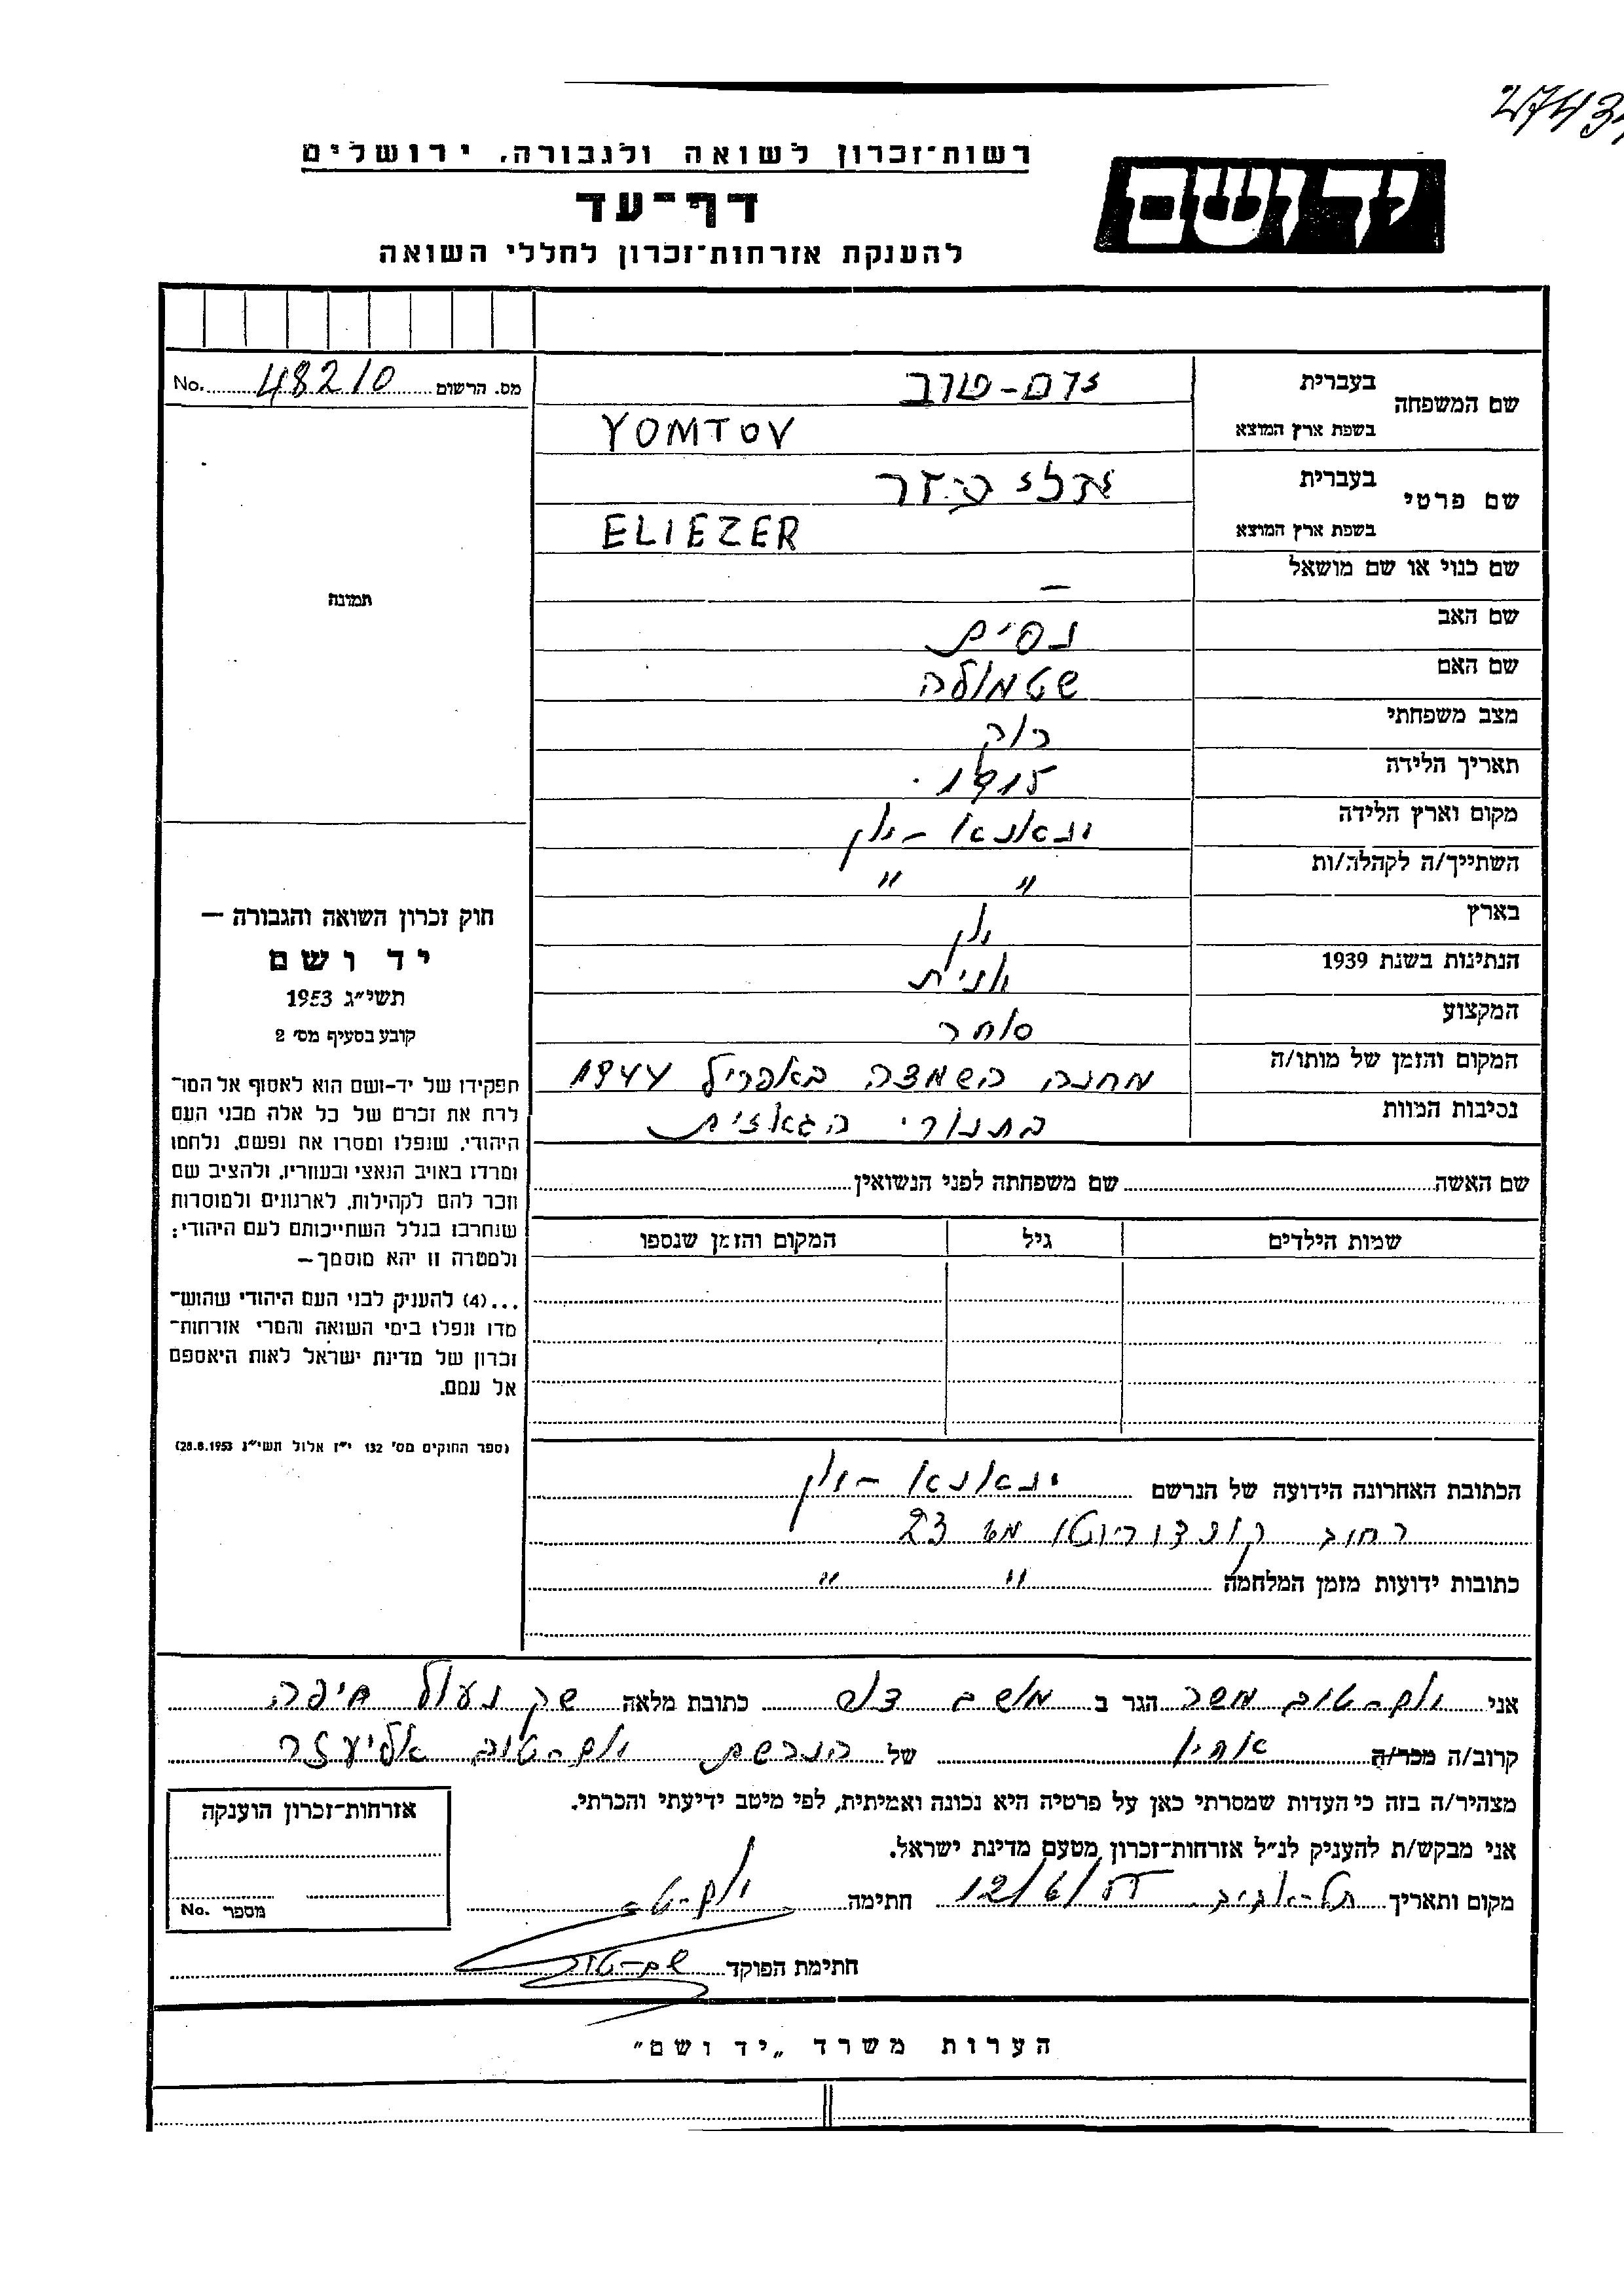 2743
רשות־זכרון לשואה ולגבורה, ירושלים
דף־עד
להענקת אזרחות־זכרון לחללי השואה
יד ושם
מס. הרשום 48210 No.
שם המשפחה
בעברית יום-טוב
בשפת ארץ המוצא YOMTOV
שם פרטי
בעברית אליעזר
בשפת ארץ המוצא ELIEZER
שם כנוי או שם מושאל —
שם האב נסים
שם האם שטמולה
מצב משפחתי רוק
תאריך הלידה 1915.
מקום וארץ הלידה יגאנא - יון
השתייך/ה לקהלה/ות " "
בארץ יון
הנתינות בשנת 1939 יונית
המקצוע סוחר
המקום והזמן של מותו/ה מחנה השמצה באפריל 1944
נסיבות המוות בתנורי הגאזים
שם האשה שם משפחתה לפני הנשואין
שמות הילדים גיל המקום והזמן שנספו
הכתובת האחרונה הידועה של הנרשם יגאנא - יון
רחוב מס 23
כתובות ידועות מזמן המלחמה " "
תמונה
חוק זכרון השואה והגבורה —
יד ושם
תשי"ג 1953
קובע בסעיף מס' 2
תפקידו של יד-ושם הוא לאסוף אל המו־
לדת את זכרם של כל אלה מבני העם
היהודי, שנפלו ומסרו את נפשם, נלחמו
ומרדו באויב הנאצי ובעוזריו, ולהציב שם
וזכר להם לקהילות, לארגונים ולמוסדות
שנחרבו בגלל השתייכותם לעם היהודי;
ולמטרה זו יהא מוסמך —
...(4) להעניק לבני העם היהודי שהוש־
מדו ונפלו בימי השואה והמרי אזרחות־
זכרון של מדינת ישראל לאות היאספם
אל עמם.
(ספר החוקים מס' 132 י"ז אלול תשי"ג 28.8.1953)
אני יום-טוב משה הגר ב מושב צופ כתובת מלאה חיפה
קרוב/ה מכר/ה אחיו של הנרשם יום-טוב אליעזר
מצהיר/ה בזה כי העדות שמסרתי כאן על פרטיה היא נכונה ואמיתית, לפי מיטב ידיעתי והכרתי.
אני מבקש/ת להעניק לנ"ל אזרחות־זכרון מטעם מדינת ישראל.
מקום ותאריך תל-אביב 12/6/55 חתימה יום-טוב
חתימת הפוקד שם-טוב
אזרחות־זכרון הוענקה
מספר No.
הערות משרד „יד ושם"